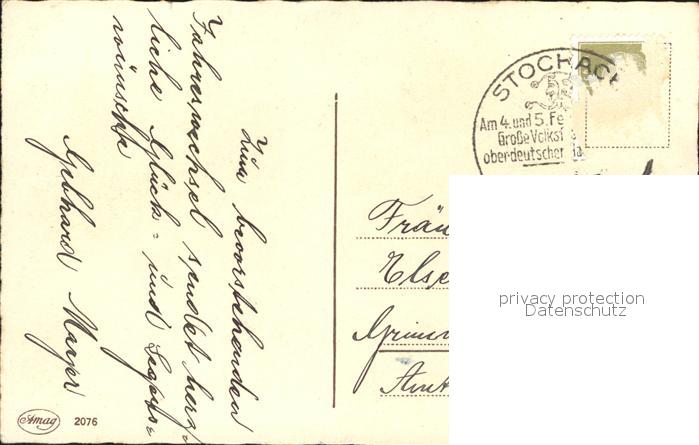 Zum bevorstehenden
Jahreswechsel sendet herz-
liche Glück- und Segens-
wünsche
Gebhard Mayer
STOCKACH
Am 4. und 5. Fe
Große Volksf
oberdeutscher
Fräu
Else
Amt
privacy protection
Datenschutz
Amag 2076